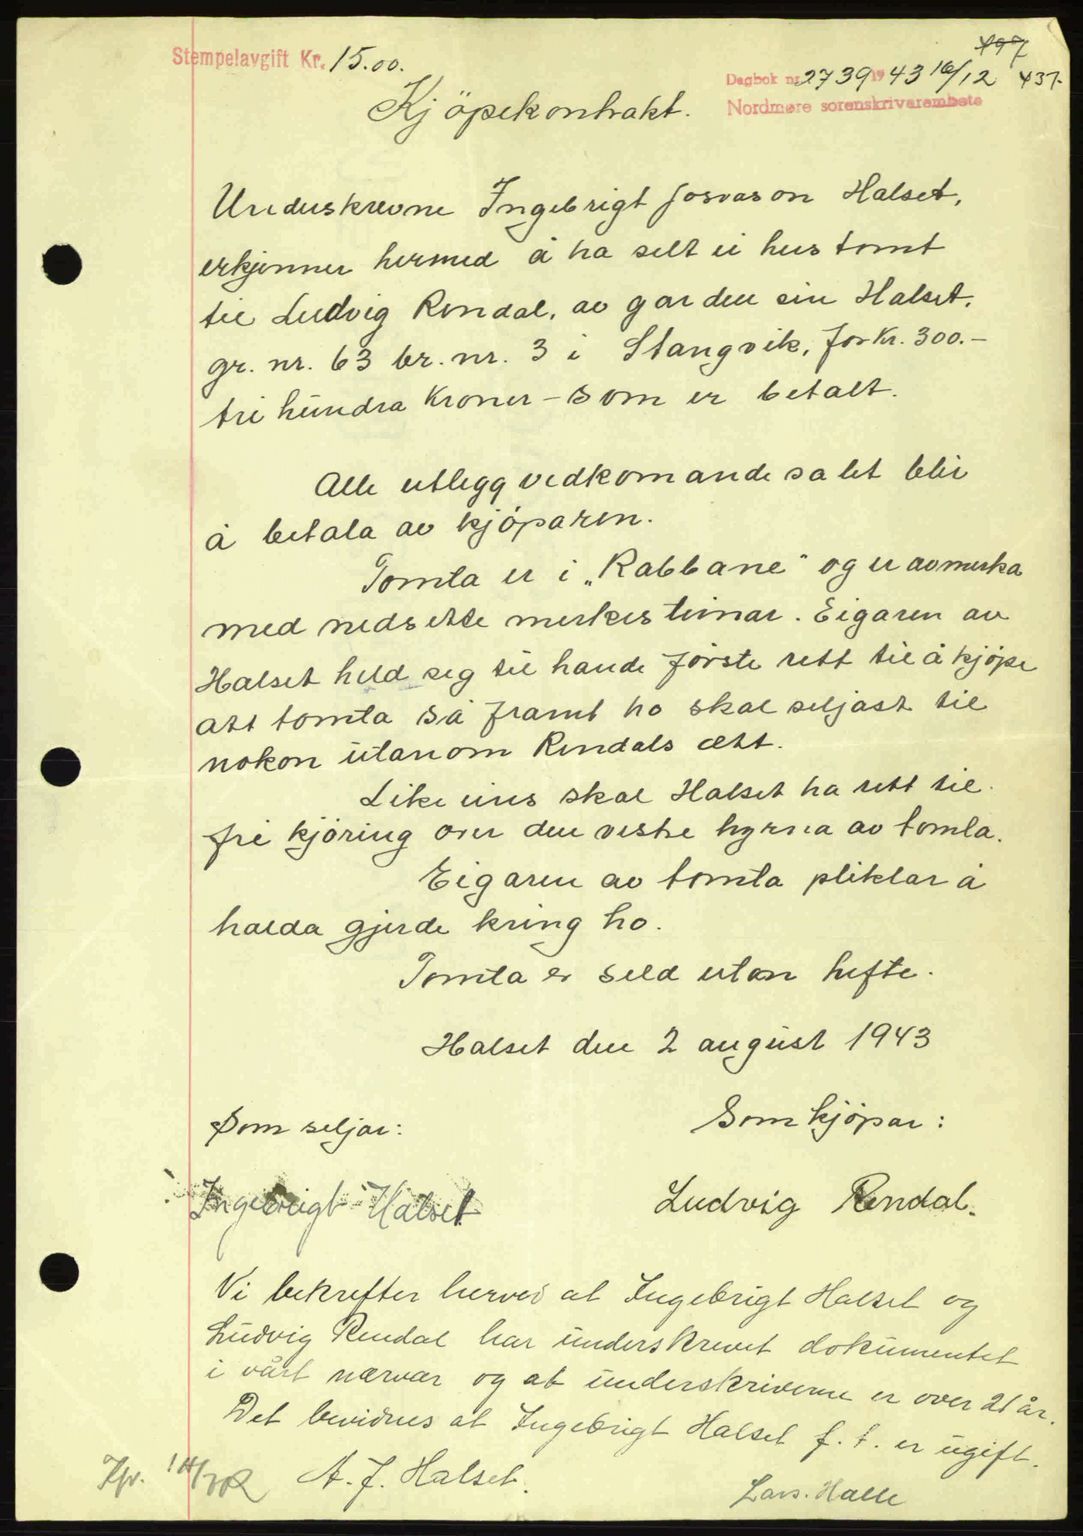 Stempelavgift Kr. 15.00.
Dagbok nr. 2739 19 43 16/12 437.
Nordmøre sorenskriverembete
Kjöpekontrakt.
Underskrevne Ingebrigt Josvason Halset,
erkjenner hermed å ha selt ei hustomt
til Ludvig Rendal, av garden sin Halset,
gr. nr. 63 br. nr. 3 i Stangvik, for kr. 300.-
tri hundra kroner - som er betalt.
Alle utlegg vedkomande salet blir
å betala av kjöparen.
Tomta er i „Rabbane" og er avmerka
med nedsette merkesteinar. Eigaren av
Halset held seg til hande förste rett til å kjöpe
att tomta så framt ho skal seljast til
nokon utanom Rendals ætt.
Like eins skal Halset ha rett til
fri kjöring over den vestre hyrna av tomta.
Eigaren av tomta pliktar å
halda gjerde kring ho.
Tomta er seld utan hefte.
Halset den 2 august 1943
Som seljar:
Som kjöpar:
Ingebrigt Halset
Ludvig Rendal.
Vi bekrefter herved at Ingebrigt Halset og
Ludvig Rendal har underskrevet dokumentet
i vårt nærvær og at underskriverne er over 21 år.
Det bevidnes at Ingebrigt Halset f. t. er ugift.
A. J. Halset.
Lars Halle